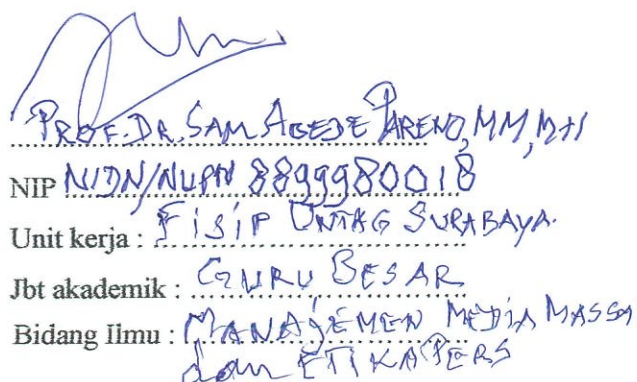 PROF. DR. SAM ABEDE PARENO, MM, MH
NIP NIDN/NUPN 8899980018
Unit kerja : FISIP UNTAG SURABAYA.
Jbt akademik : GURU BESAR
Bidang Ilmu : MANAJEMEN MEDIA MASSA
dan ETIKA PERS